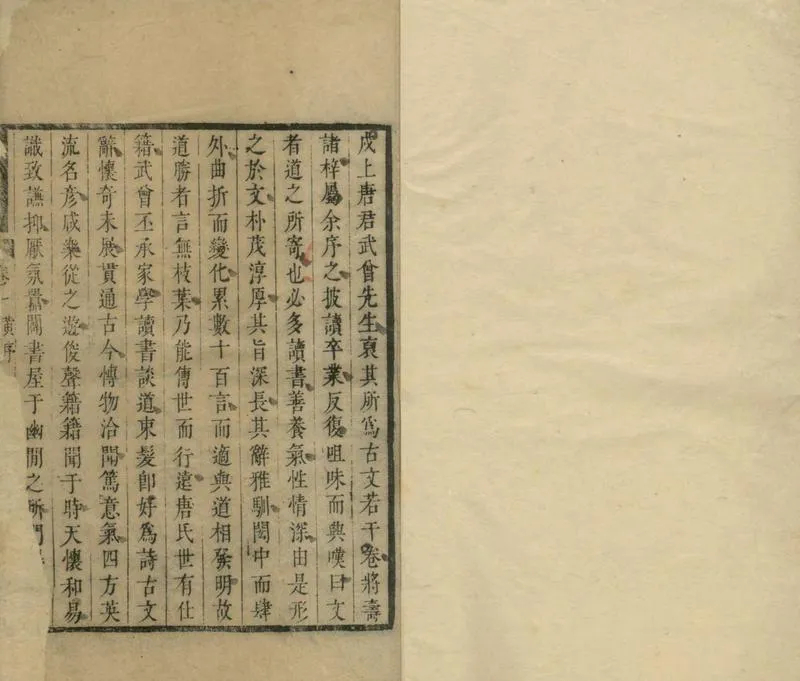 戌上唐君武曾先生裒其所爲古文若干卷將壽
諸梓屬余序之披讀卒業反復咀味而興嘆曰文
者道之所寄也必多讀書善養氣性情深由是形
之於文朴茂淳厚其旨深長其辭雅馴閎中而肆
外曲折而變化累數十百言而適與道相發明故
道勝者言無枝葉乃能傳世而行遠唐氏世有仕
籍武曾丕承家學讀書談道束髮卽好爲詩古文
辭懷奇未展貫通古今愽物洽聞篤意氣四方英
流名彦咸樂從之遊俊聲籍籍聞于時天懷和易
識致謙抑厭氛囂闢書屋于幽閒之所門
卷一 黄序